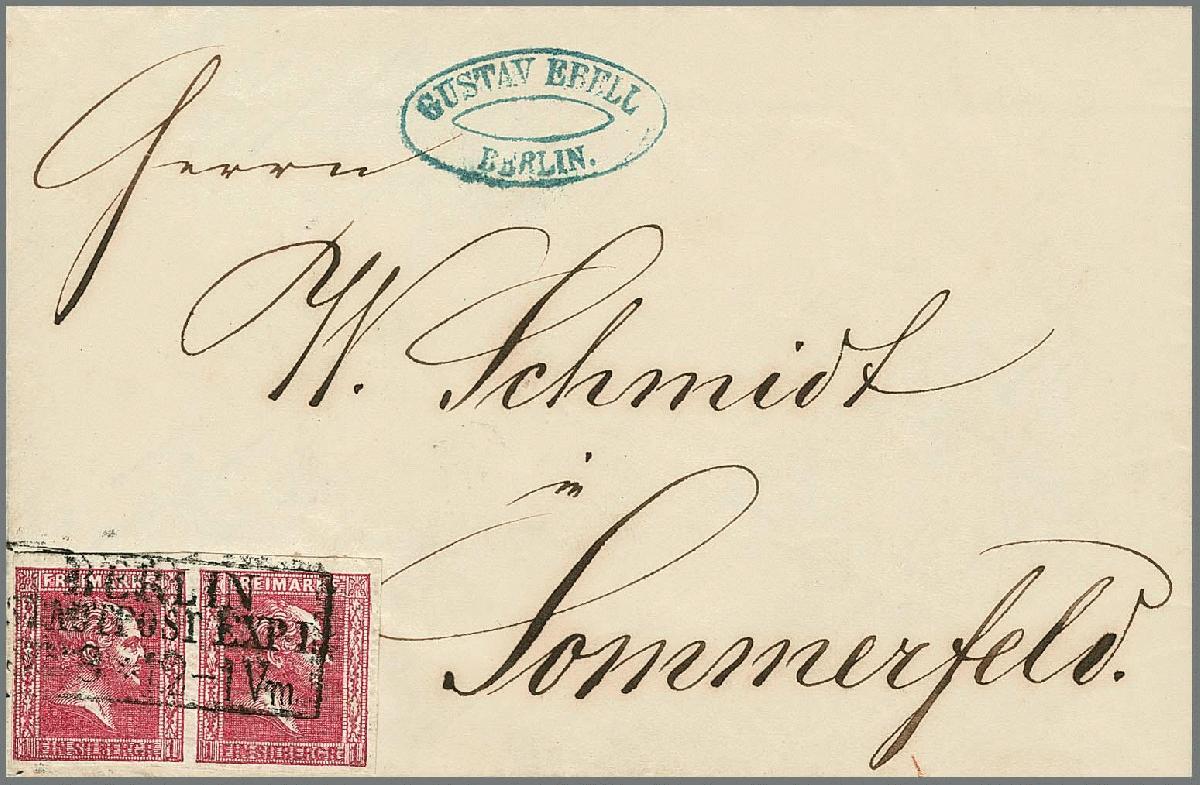 GUSTAV EBELL
BERLIN.
Herrn
W. Schmidt
in
Sommerfeld.
BERLIN
POST EXP I.
1 Vm.
FREIMARKE FREIMARKE
1 EIN SILBERGR. 1 1 EIN SILBERGR. 1